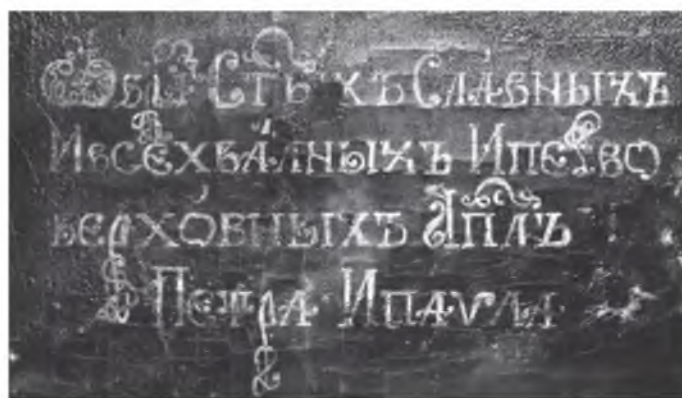 Ст҃ыхъ Славныхъ
И всехва́лныхъ И перво
верхо́вныхъ Апⷭ҇лъ
Петра И паѵла